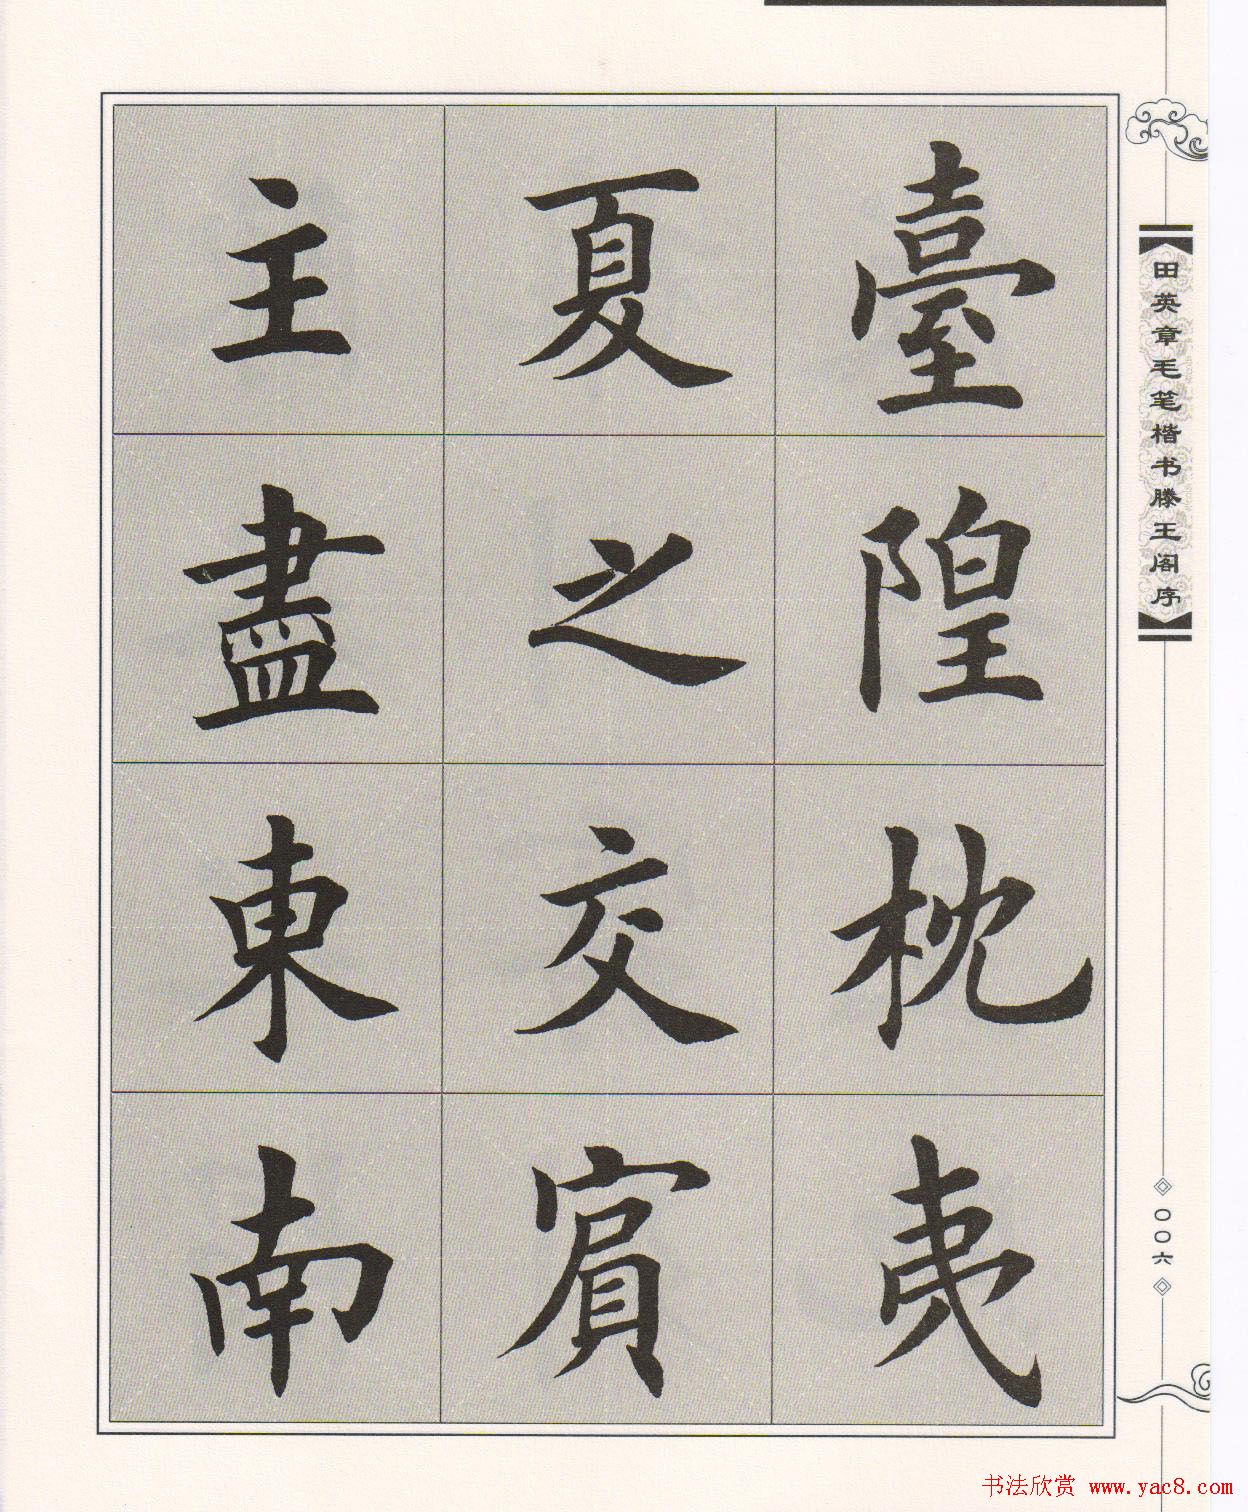 臺隍枕夷
夏之交賔
主盡東南
田英章毛笔楷书滕王阁序
〇〇六
书法欣赏 www.yac8.com